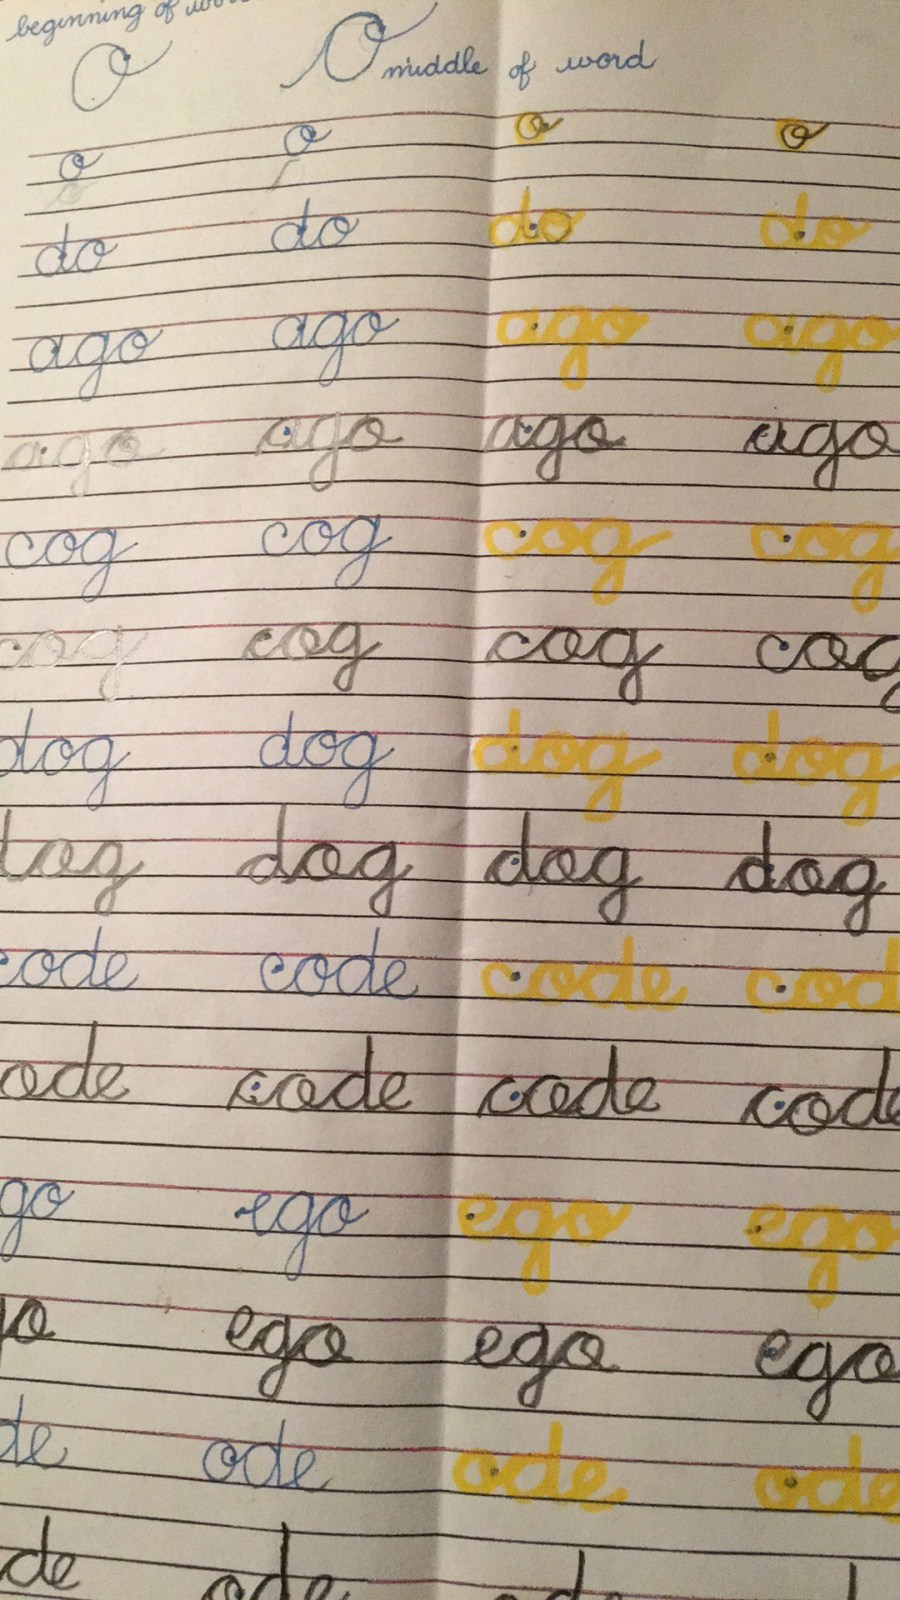 beginning of word
O O middle of word
o o o o
do do do do
ago ago ago ago
ago ago ago ago
cog cog cog cog
cog cog cog cog
dog dog dog dog
dog dog dog dog
code code code cod
ode code code code
go ego ego ego
go ego ego ego
de ode ode ode
de ode ode